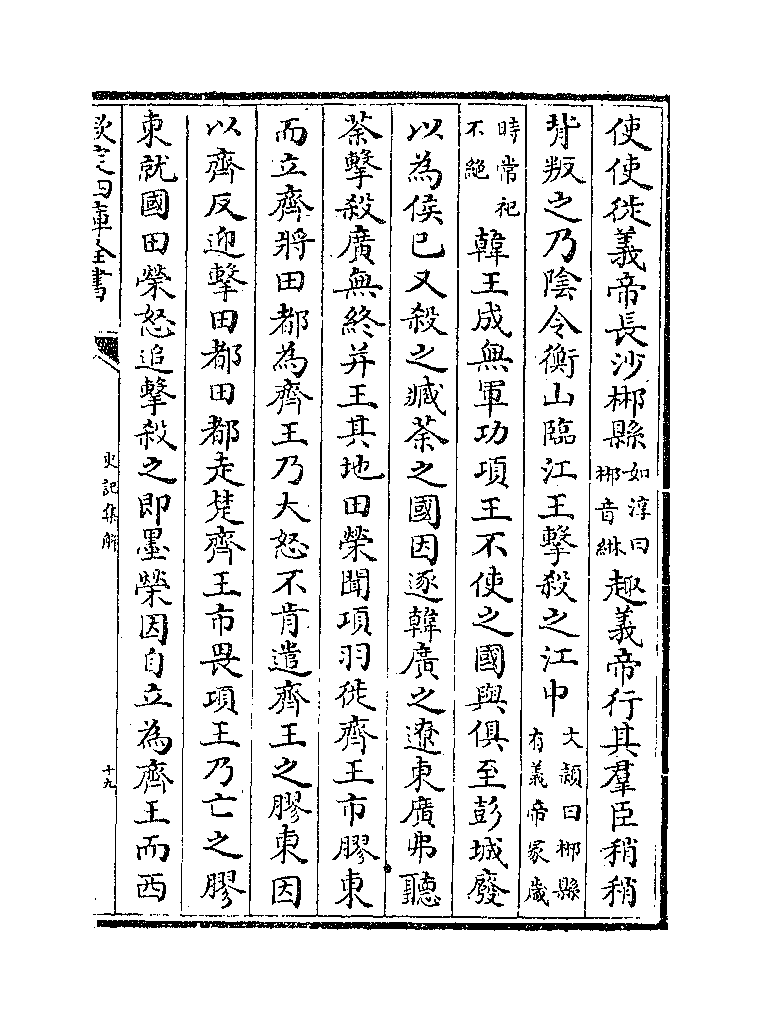 使使徙義帝長沙郴縣如淳曰郴音綝趣義帝行其羣臣稍稍
背叛之乃陰令衡山臨江王擊殺之江中文穎曰郴縣有義帝冢歲
時常祀不絕韓王成無軍功項王不使之國與俱至彭城廢
以為侯已又殺之臧荼之國因逐韓廣之遼東廣弗聽
荼擊殺廣無終并王其地田榮聞項羽徙齊王市膠東
而立齊將田都為齊王乃大怒不肯遣齊王之膠東因
以齊反迎擊田都田都走楚齊王市畏項王乃亡之膠
東就國田榮怒追擊殺之即墨榮因自立為齊王而西
欽定四庫全書
史記集解
十九